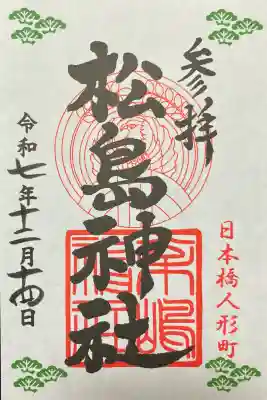 参拝
日本橋人形町
松島神社
令和七年十二月十四日